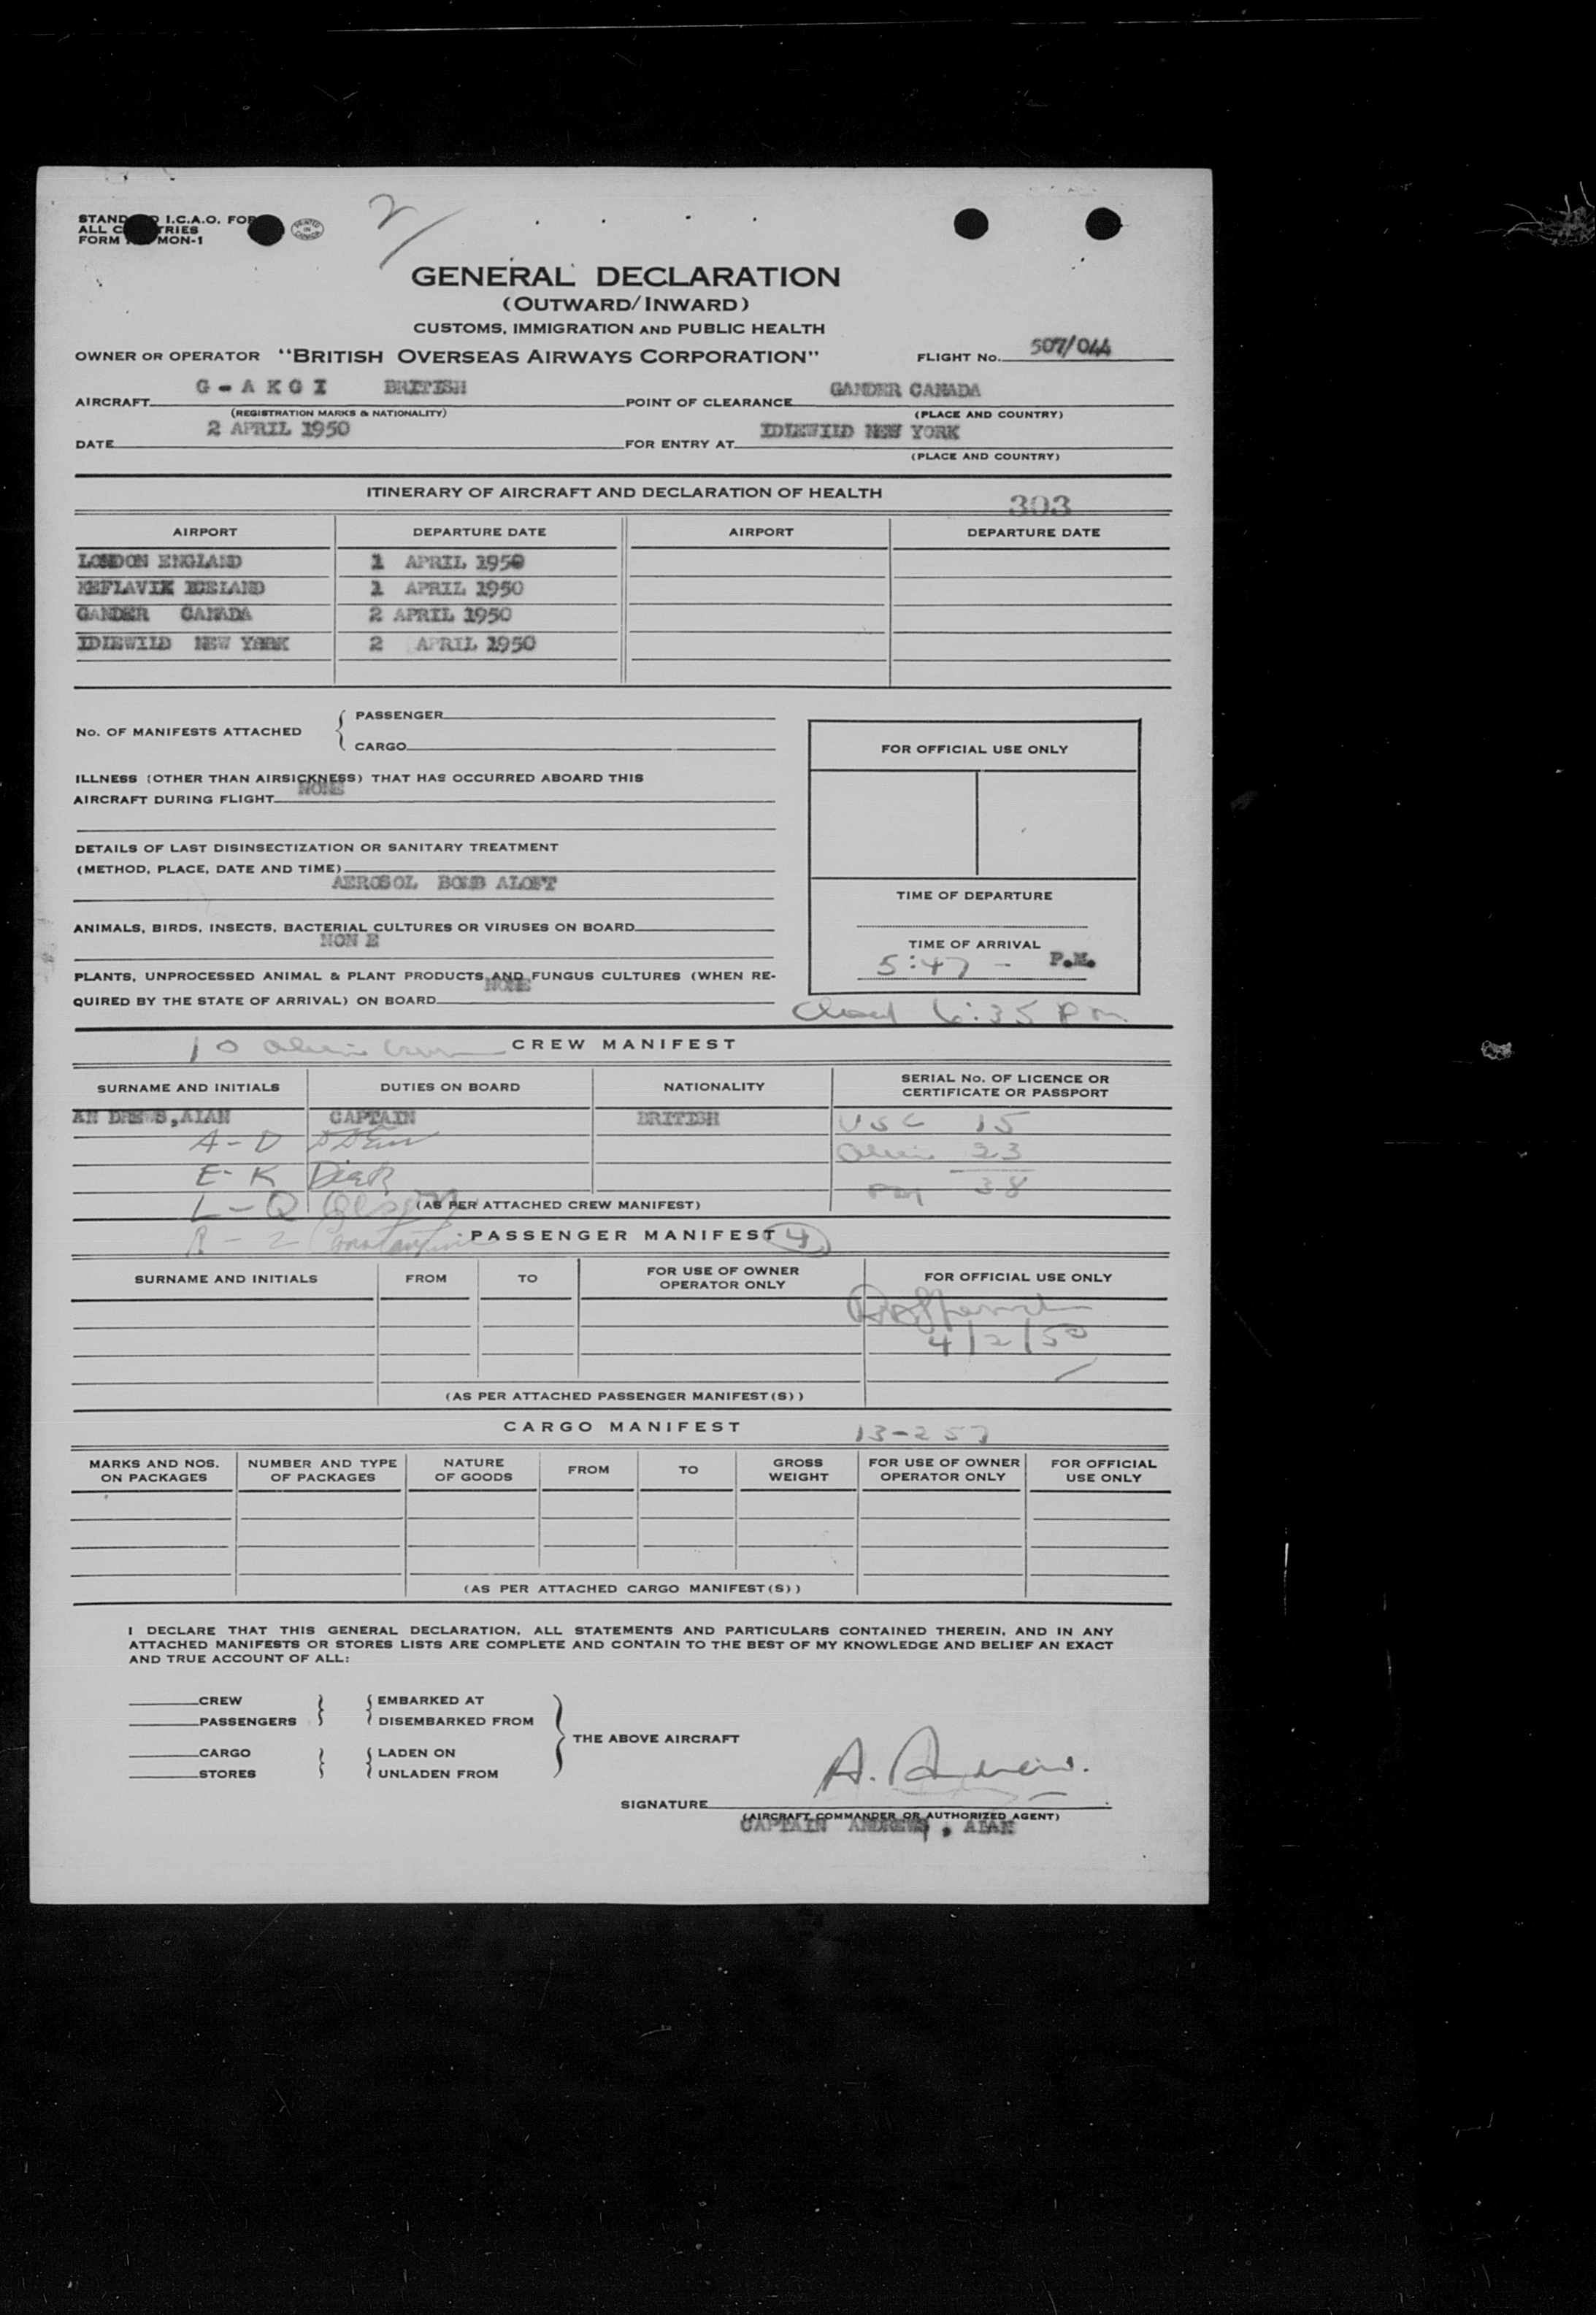 STAND I.C.A.O. FOR
ALL C TRIES
FORM MON-1
PRINTED IN CANADA
2/
GENERAL DECLARATION
(OUTWARD/INWARD)
CUSTOMS, IMMIGRATION AND PUBLIC HEALTH
OWNER OR OPERATOR "BRITISH OVERSEAS AIRWAYS CORPORATION" FLIGHT No. 507/044
AIRCRAFT G-AKGI BRITISH POINT OF CLEARANCE GANDER CANADA
(REGISTRATION MARKS & NATIONALITY) (PLACE AND COUNTRY)
DATE 2 APRIL 1950 FOR ENTRY AT IDLEWILD NEW YORK
(PLACE AND COUNTRY)
ITINERARY OF AIRCRAFT AND DECLARATION OF HEALTH 303
AIRPORT DEPARTURE DATE AIRPORT DEPARTURE DATE
LONDON ENGLAND 1 APRIL 1950
KEFLAVIK ICELAND 1 APRIL 1950
GANDER CANADA 2 APRIL 1950
IDLEWILD NEW YORK 2 APRIL 1950
No. OF MANIFESTS ATTACHED { PASSENGER
CARGO
FOR OFFICIAL USE ONLY
ILLNESS (OTHER THAN AIRSICKNESS) THAT HAS OCCURRED ABOARD THIS
AIRCRAFT DURING FLIGHT NONE
DETAILS OF LAST DISINSECTIZATION OR SANITARY TREATMENT
(METHOD, PLACE, DATE AND TIME)
AEROSOL BOMB ALOFT
TIME OF DEPARTURE
ANIMALS, BIRDS, INSECTS, BACTERIAL CULTURES OR VIRUSES ON BOARD
NON E
TIME OF ARRIVAL
5:47 - P.M.
PLANTS, UNPROCESSED ANIMAL & PLANT PRODUCTS AND FUNGUS CULTURES (WHEN RE-
QUIRED BY THE STATE OF ARRIVAL) ON BOARD NONE
6:35 PM
10 alien crew CREW MANIFEST
SURNAME AND INITIALS DUTIES ON BOARD NATIONALITY SERIAL No. OF LICENCE OR
CERTIFICATE OR PASSPORT
AN DREWS,ALAN CAPTAIN BRITISH USC 15
A-D Alien 23
E-K 38
L-Q (AS PER ATTACHED CREW MANIFEST)
R-Z PASSENGER MANIFEST 4
SURNAME AND INITIALS FROM TO FOR USE OF OWNER
OPERATOR ONLY FOR OFFICIAL USE ONLY
4/2/50
(AS PER ATTACHED PASSENGER MANIFEST(S))
CARGO MANIFEST 13-257
MARKS AND NOS.
ON PACKAGES NUMBER AND TYPE
OF PACKAGES NATURE
OF GOODS FROM TO GROSS
WEIGHT FOR USE OF OWNER
OPERATOR ONLY FOR OFFICIAL
USE ONLY
(AS PER ATTACHED CARGO MANIFEST(S))
I DECLARE THAT THIS GENERAL DECLARATION, ALL STATEMENTS AND PARTICULARS CONTAINED THEREIN, AND IN ANY
ATTACHED MANIFESTS OR STORES LISTS ARE COMPLETE AND CONTAIN TO THE BEST OF MY KNOWLEDGE AND BELIEF AN EXACT
AND TRUE ACCOUNT OF ALL:
CREW EMBARKED AT
PASSENGERS DISEMBARKED FROM
THE ABOVE AIRCRAFT
CARGO LADEN ON
STORES UNLADEN FROM
A. Andrews.
SIGNATURE
(AIRCRAFT COMMANDER OR AUTHORIZED AGENT)
CAPTAIN ANDREWS, ALAN